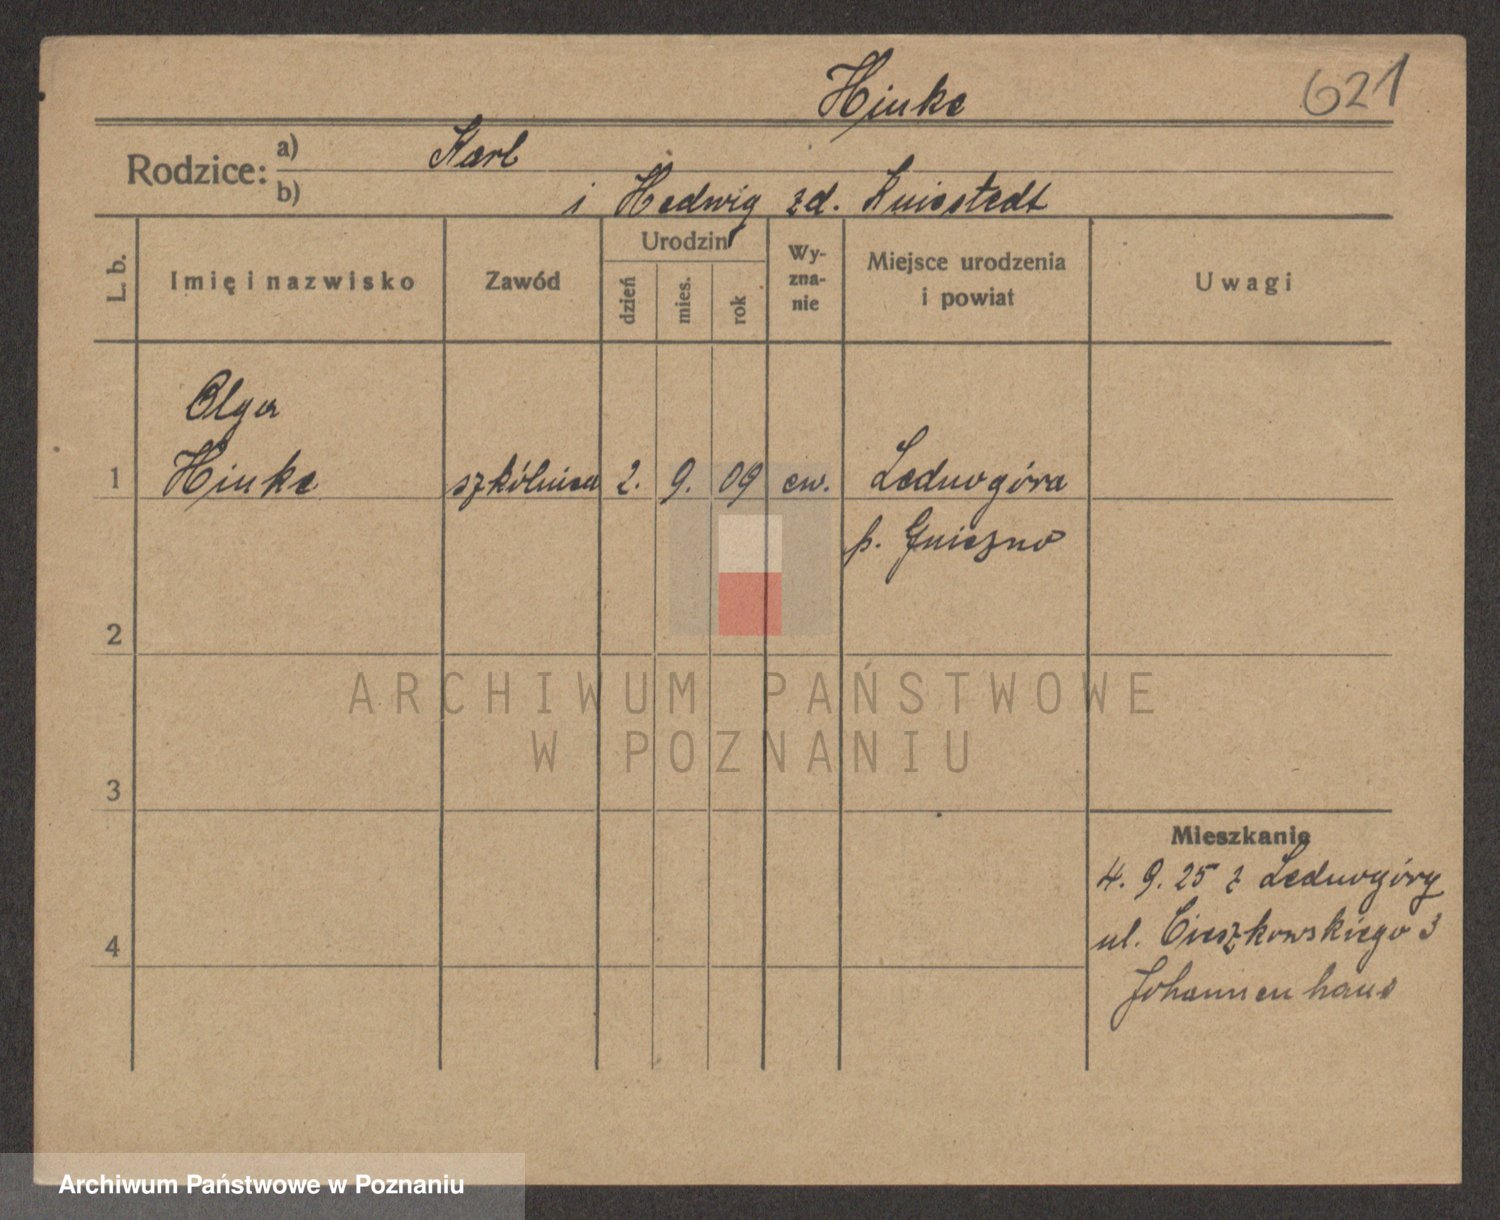 Hinke
621
Rodzice:
a) Karl
b) i Hedwig zd. Kniestedt
L. b.
Imię i nazwisko
Zawód
Urodzin
dzień
mies.
rok
Wy-
zna-
nie
Miejsce urodzenia
i powiat
Uwagi
Olga
1 Hinke szkólnica 2. 9. 09 ew. Lednogóra
p. Gniezno
2
3
4
Mieszkanie
4. 9. 25 z Lednogóry
ul. Cieszkowskiego 3
Johannenhaus
ARCHIWUM PAŃSTWOWE
W POZNANIU
Archiwum Państwowe w Poznaniu